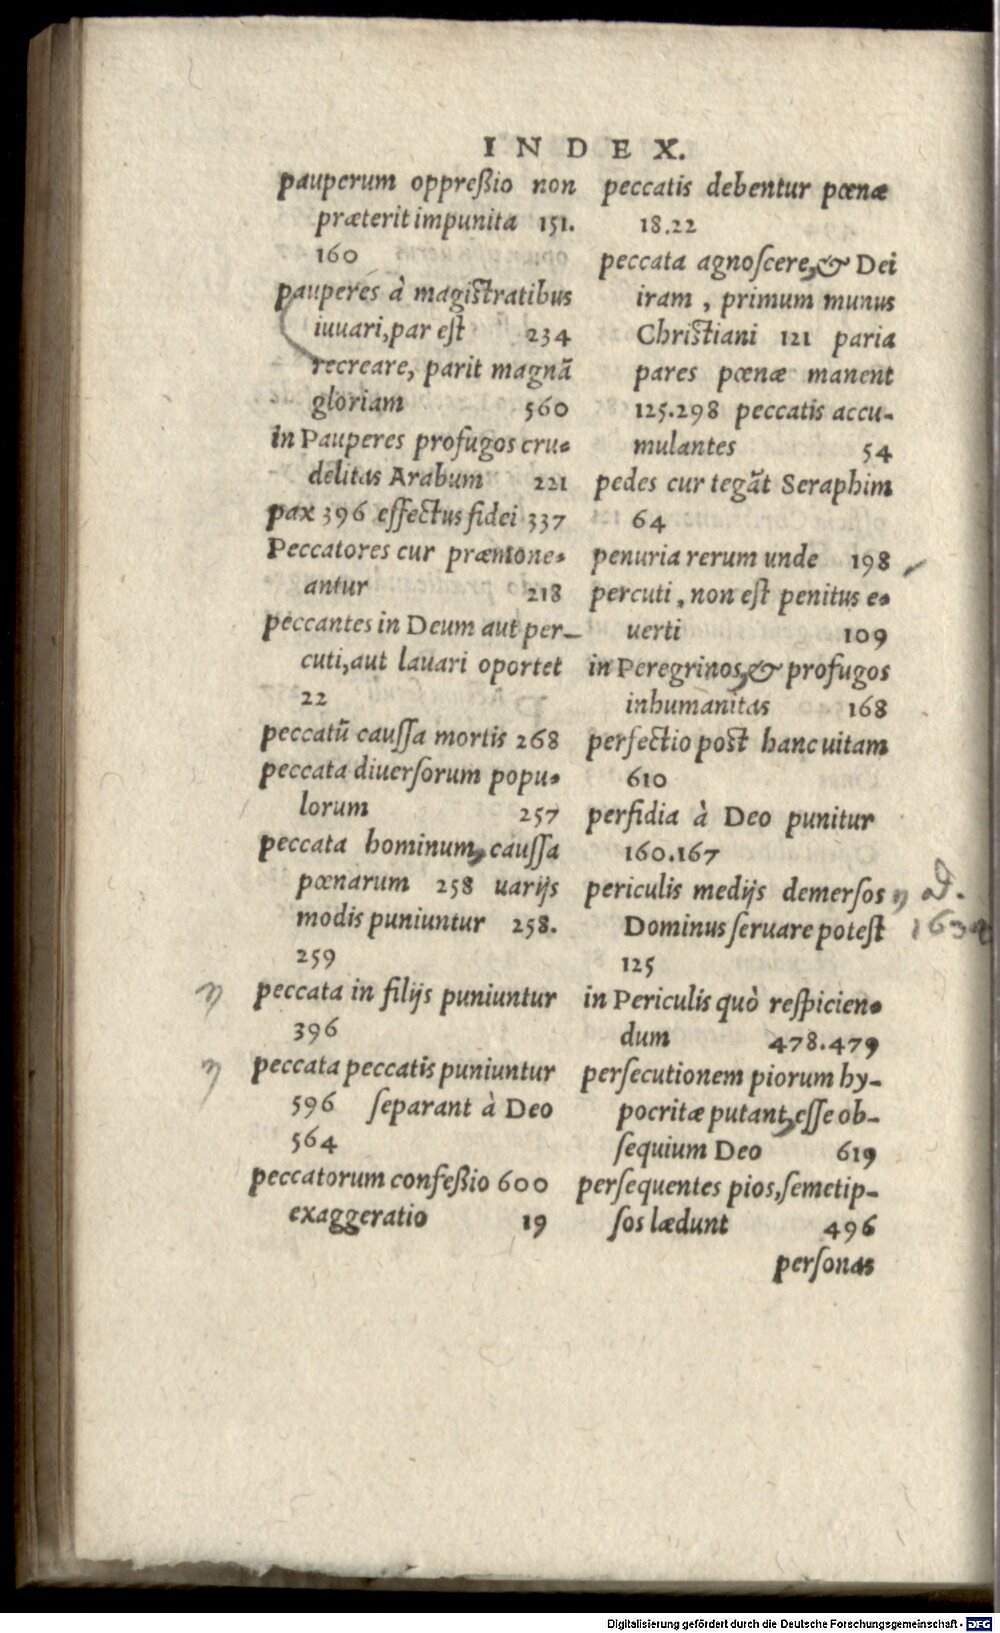 INDEX.
pauperum oppreßio non
præterit impunita 151.
160
pauperes à magistratibus
iuuari, par est 234
recreare, parit magnã
gloriam 560
in Pauperes profugos cru-
delitas Arabum 221
pax 396 effectus fidei 337
Peccatores cur præmone-
antur 218
peccantes in Deum aut per-
cuti, aut lauari oportet
22
peccatũ caussa mortis 268
peccata diuersorum popu-
lorum 257
peccata hominum, caussa
pœnarum 258 uarijs
modis puniuntur 258.
259
peccata in filijs puniuntur
396
peccata peccatis puniuntur
596 separant à Deo
564
peccatorum confeßio 600
exaggeratio 19
peccatis debentur pœnæ
18.22
peccata agnoscere, & Dei
iram, primum munus
Christiani 121 paria
pares pœnæ manent
125.298 peccatis accu-
mulantes 54
pedes cur tegãt Seraphim
64
penuria rerum unde 198
percuti, non est penitus e-
uerti 109
in Peregrinos, & profugos
inhumanitas 168
perfectio post hanc uitam
610
perfidia à Deo punitur
160.167
periculis medijs demersos
Dominus seruare potest
125
in Periculis quò respicien-
dum 478.479
persecutionem piorum hy-
pocritæ putant, esse ob-
sequium Deo 619
persequentes pios, semetip-
sos lædunt 496
personas
1634
Digitalisierung gefördert durch die Deutsche Forschungsgemeinschaft - DFG